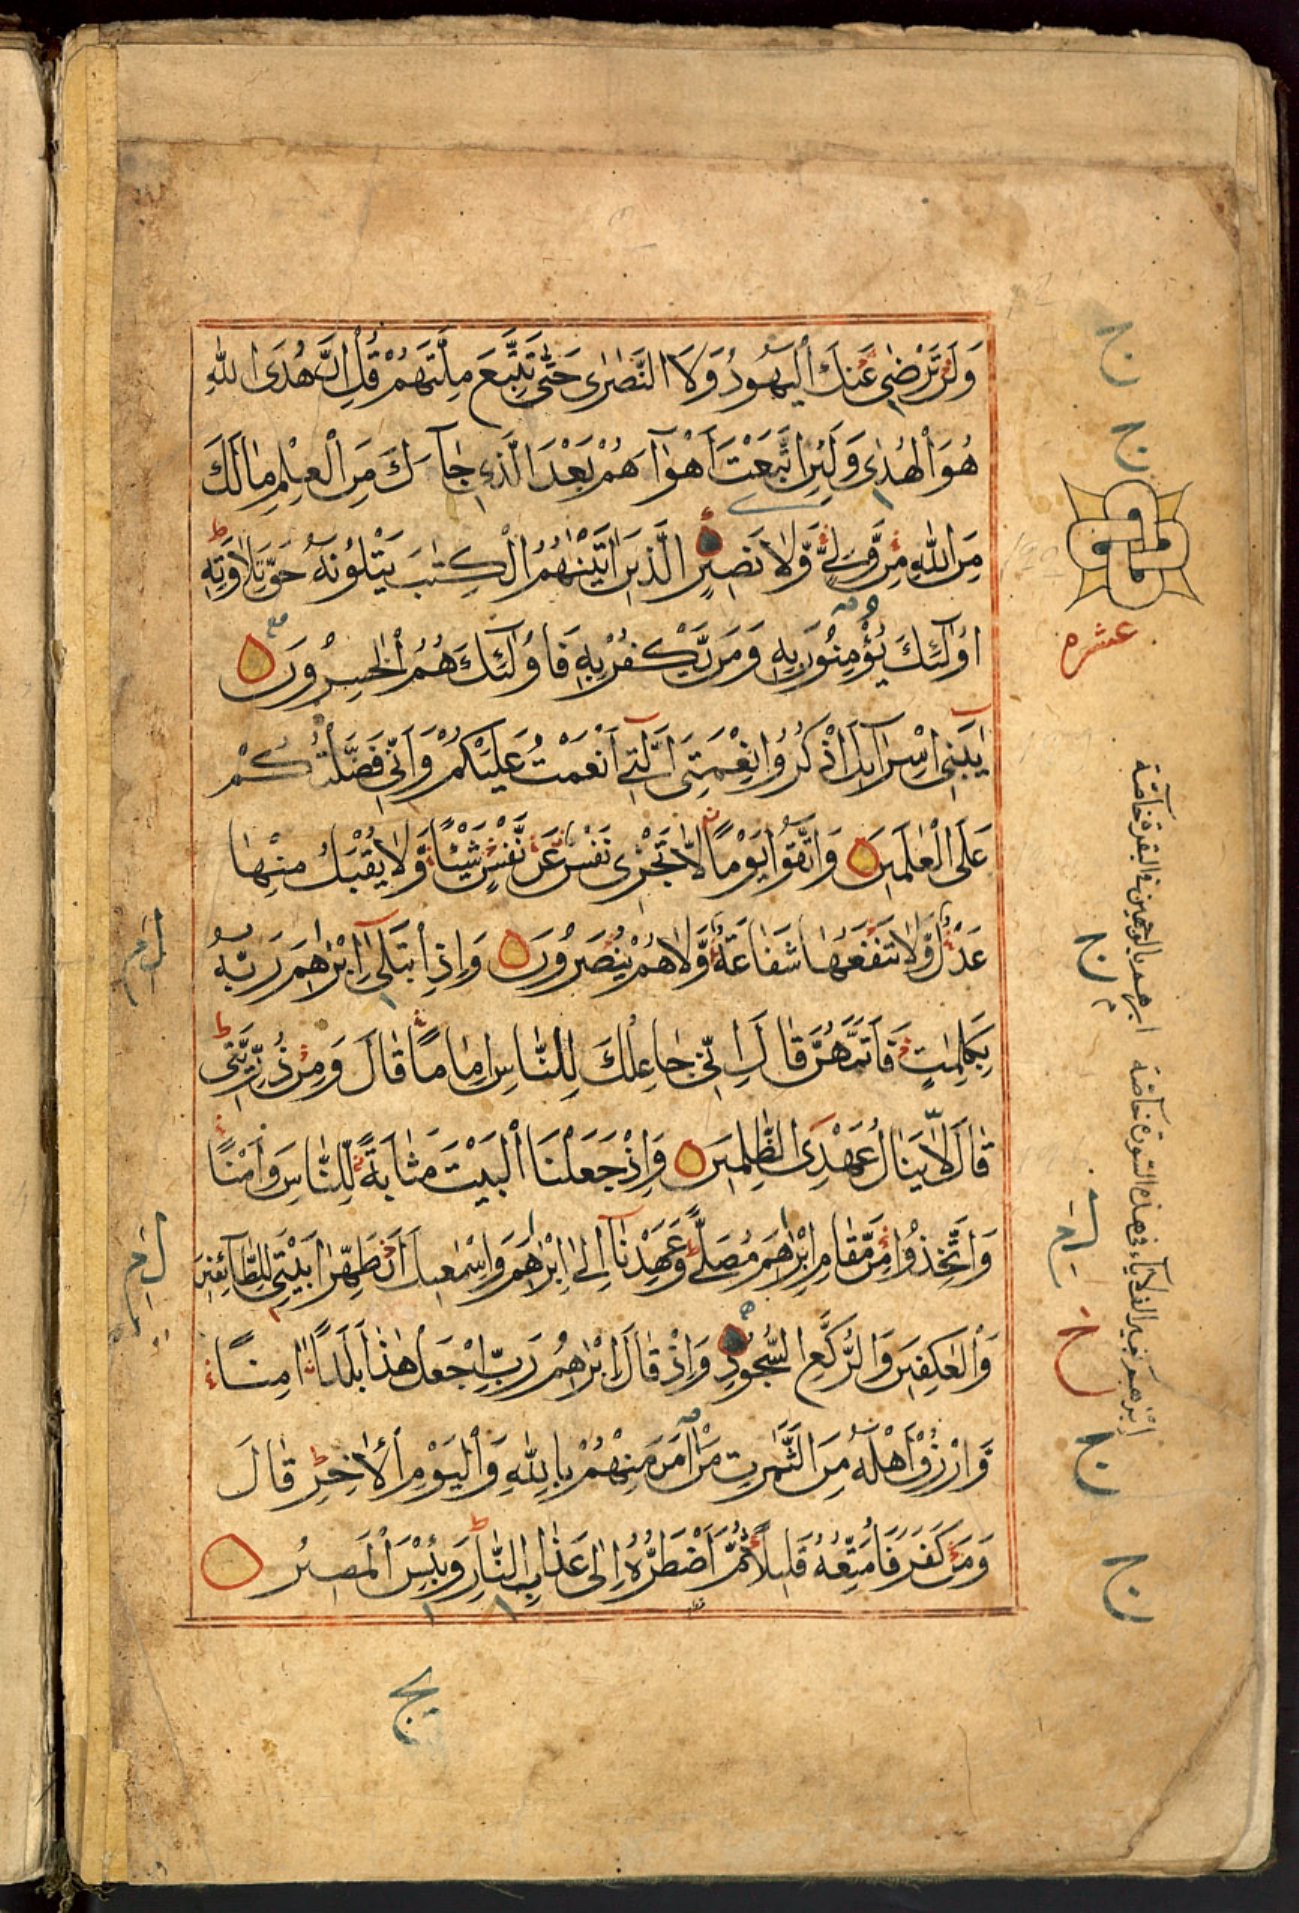 وَلَنْ تَرْضٰى عَنْكَ الْيَهُوْدُ وَلَا النَّصٰرٰى حَتّٰى تَتَّبِعَ مِلَّتَهُمْ قُلْ اِنَّ هُدَى اللّٰهِ
هُوَ الْهُدٰى وَلَئِنِ اتَّبَعْتَ اَهْوَآءَهُمْ بَعْدَ الَّذِى جَآءَكَ مِنَ الْعِلْمِ مَا لَكَ
مِنَ اللّٰهِ مِنْ وَّلِىٍّ وَّلَا نَصِيْرٍ الَّذِيْنَ اٰتَيْنٰهُمُ الْكِتٰبَ يَتْلُوْنَهٗ حَقَّ تِلَاوَتِهٖ
اُولٰٓئِكَ يُؤْمِنُوْنَ بِهٖ وَمَنْ يَّكْفُرْ بِهٖ فَاُولٰٓئِكَ هُمُ الْخٰسِرُوْنَ
يٰبَنِىْٓ اِسْرَآءِيْلَ اذْكُرُوْا نِعْمَتِىَ الَّتِىْٓ اَنْعَمْتُ عَلَيْكُمْ وَاَنِّىْ فَضَّلْتُكُمْ
عَلَى الْعٰلَمِيْنَ وَاتَّقُوْا يَوْمًا لَّا تَجْزِىْ نَفْسٌ عَنْ نَّفْسٍ شَيْـًٔا وَّلَا يُقْبَلُ مِنْهَا
عَدْلٌ وَّلَا تَنْفَعُهَا شَفَاعَةٌ وَّلَا هُمْ يُنْصَرُوْنَ وَاِذِ ابْتَلٰٓى اِبْرٰهٖمَ رَبُّهٗ
بِكَلِمٰتٍ فَاَتَمَّهُنَّ قَالَ اِنِّىْ جَاعِلُكَ لِلنَّاسِ اِمَامًا قَالَ وَمِنْ ذُرِّيَّتِىْ
قَالَ لَا يَنَالُ عَهْدِى الظّٰلِمِيْنَ وَاِذْ جَعَلْنَا الْبَيْتَ مَثَابَةً لِّلنَّاسِ وَاَمْنًا
وَاتَّخِذُوْا مِنْ مَّقَامِ اِبْرٰهٖمَ مُصَلًّى وَعَهِدْنَآ اِلٰٓى اِبْرٰهٖمَ وَاِسْمٰعِيْلَ اَنْ طَهِّرَا بَيْتِىَ لِلطَّآئِفِيْنَ
وَالْعٰكِفِيْنَ وَالرُّكَّعِ السُّجُوْدِ وَاِذْ قَالَ اِبْرٰهٖمُ رَبِّ اجْعَلْ هٰذَا بَلَدًا اٰمِنًا
وَّارْزُقْ اَهْلَهٗ مِنَ الثَّمَرٰتِ مَنْ اٰمَنَ مِنْهُمْ بِاللّٰهِ وَالْيَوْمِ الْاٰخِرِ قَالَ
وَمَنْ كَفَرَ فَاُمَتِّعُهٗ قَلِيْلًا ثُمَّ اَضْطَرُّهٗٓ اِلٰى عَذَابِ النَّارِ وَبِئْسَ الْمَصِيْرُ
عشره